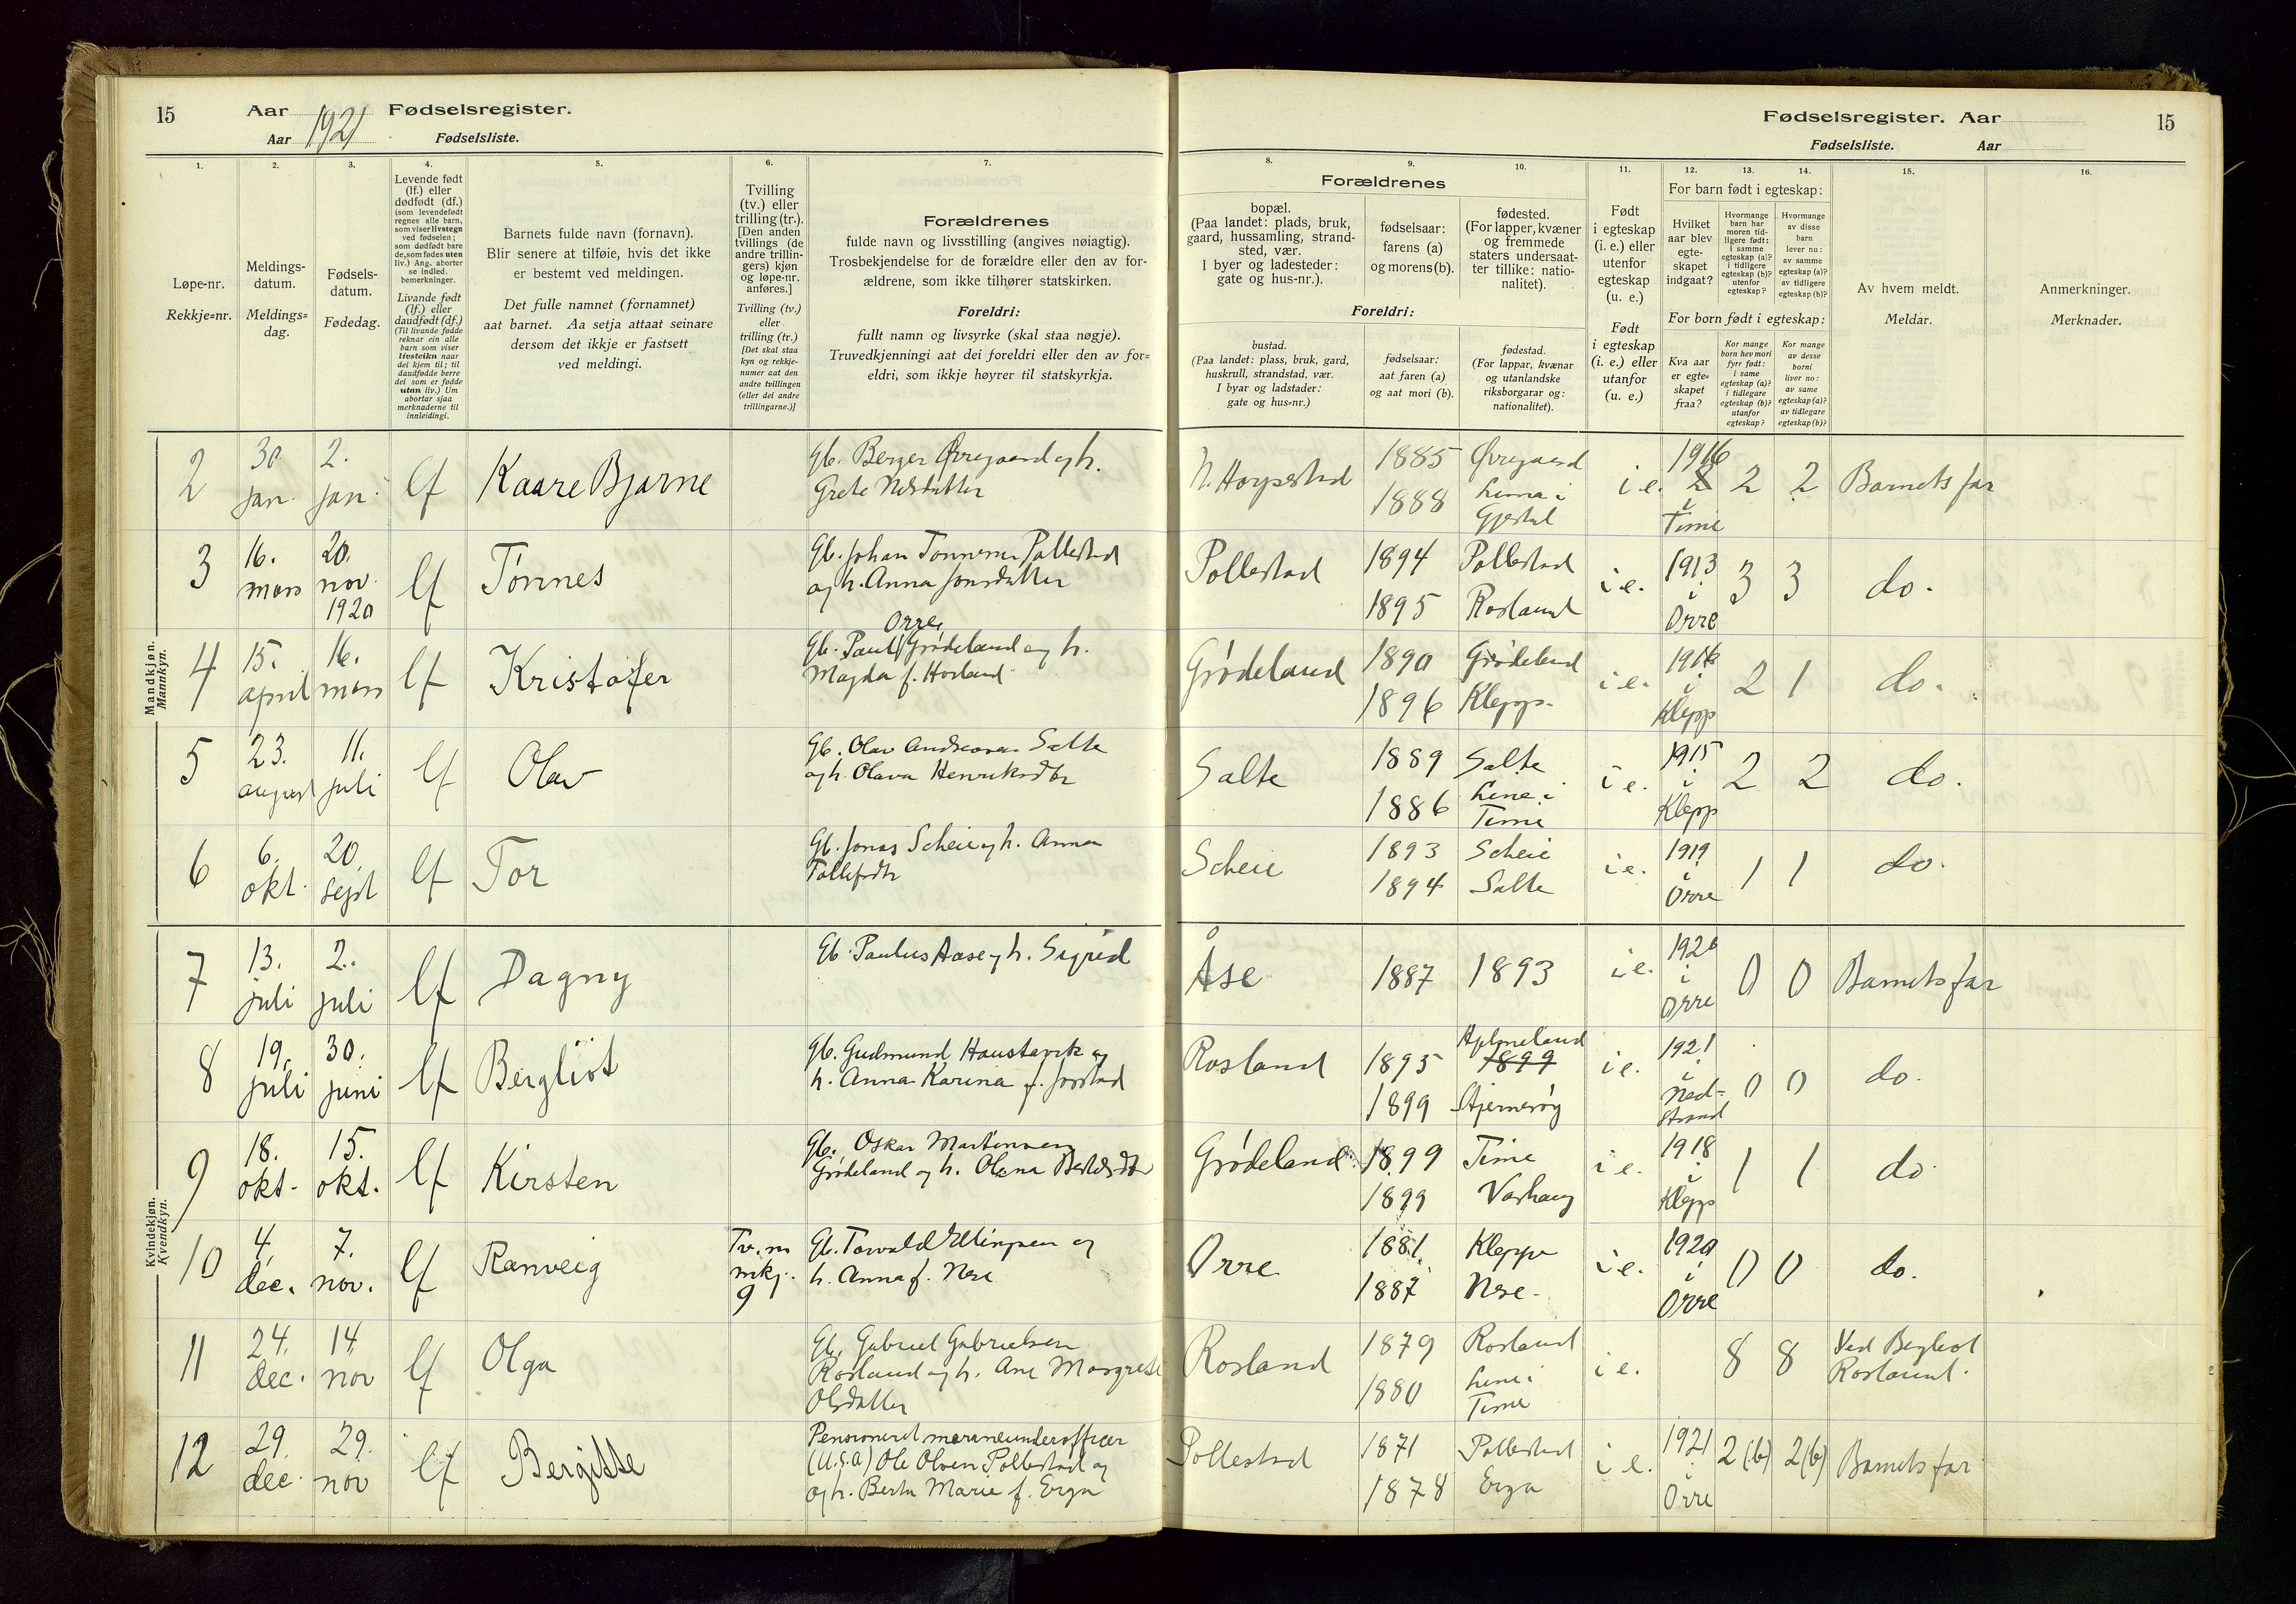 15
Aar 1921 Fødselsregister.
Aar Fødselsliste.
Fødselsregister. Aar
Fødselsliste. Aar
15
1.
Løpe-nr.
Rekkje=nr.
2.
Meldings-
datum.
Meldings=
dag.
3.
Fødsels-
datum.
Fødedag.
4.
Levende født
(lf.) eller
dødfødt (df.)
(som levendefødt
regnes alle barn,
som viser livstegn
ved fødselen;
som dødfødt bare
de, som fødes uten
liv.) Ang. aborter
se indled.
bemerkninger.
Livande født
(lf.) eller
daudfødt (df.)
(Til livande fødde
reknar ein alle
barn som viser
livsteikn naar
dei kjem til; til
daudfødde berre
dei som er fødde
utan liv.) Um
abortar sjaa
merknaderne til
innleidingi.
5.
Barnets fulde navn (fornavn).
Blir senere at tilføie, hvis det ikke
er bestemt ved meldingen.
Det fulle namnet (fornamnet)
aat barnet. Aa setja attaat seinare
dersom det ikkje er fastsett
ved meldingi.
6.
Tvilling
(tv.) eller
trilling (tr.).
[Den anden
tvillings (de
andre trillin-
gers) kjøn
og løpe-nr.
anføres.]
Tvilling (tv.)
eller
trilling (tr.)
[Det skal staa
kyn og rekkje-
numer aat den
andre tvillingen
(eller dei andre
trillingarne.)]
7.
Forældrenes
fulde navn og livsstilling (angives nøiagtig).
Trosbekjendelse for de forældre eller den av for-
ældrene, som ikke tilhører statskirken.
Foreldri:
fullt namn og livsyrke (skal staa nøgje).
Truvedkjenningi aat dei foreldri eller den av for=
eldri, som ikkje høyrer til statskyrkja.
8.
Forældrenes
bopæl.
(Paa landet: plads, bruk,
gaard, hussamling, strand-
sted, vær.
I byer og ladesteder:
gate og hus-nr.).
Foreldri:
bustad.
(Paa landet: plass, bruk, gard,
huskrull, strandstad, vær.
I byar og ladstader:
gate og hus=nr.)
9.
fødselsaar:
farens (a)
og morens (b).
fødselsaar:
aat faren (a)
og aat mori (b).
10.
fødested.
(For lapper, kvæner
og fremmede
staters undersaat-
ter tillike: natio-
nalitet).
fødestad.
(For lappar, kvænar
og utanlandske
riksborgarar og:
nationalitet).
11.
Født
i egteskap
(i. e.) eller
utenfor
egteskap
(u. e.)
Født
i egteskap
(i. e.) eller
utanfor
(u. e.)
12.
13.
14.
For barn født i egteskap:
Hvilket
aar blev
egte-
skapet
indgaat?
Hvormange
barn har
moren tid-
ligere født:
i samme
egteskap (a)?
i tidligere
egteskap (b)?
utenfor
egteskap?
Hvormange
av disse
barn
lever nu:
av samme
egteskap (a)?
av tidligere
egteskap (b)?
For born født i egteskap:
Kva aar
er egte=
skapet
fraa?
Kor mange
born hev mori
fyrr født:
i same
egteskap (a)?
i tidlegare
egteskap (b)?
utanfor
egteskap?
Kor mange
av desse
borni
liver no:
av same
egteskap (a)?
av tidlegare
egteskap (b)?
15.
Av hvem meldt.
Meldar.
16.
Anmerkninger.
Merknader.
Mandkjøn.
Mannkyn.
2 30 jan. 2. jan. lf Kaare Bjarne
Gb. Berger Øvregaard og h.
Grete Nilsdatter
1885 1888 Øvregaard
i
Gjestal
i e. 1916 i Time 2 2 Barnets far
3 16. mars 20. nov. 1920 lf Tønnes
Gb. Johan Tønnesen Pollestad
og h. Anna Jonsdatter
Pollestad 1894 1895 Pollestad Rosland i e. 1913 i Orre 3 3 do.
4 15. april 16. mars lf Kristofer
Orre,
Gb. Paul Grødeland og h.
Magda f. Horland
Grødeland 1890 1896 Grødeland Klepp. i e. i Klepp 2 1 do.
5 23. august 11. juli lf Olav
Gb. Olav Andreasen Salte
og h. Olava Henriksdtr
Salte 1889 1886 Salte Line i Time i e. 1915 i Klepp 2 2 do.
6 6. okt. 20. sept lf Tor
Gb. Jonas Scheie og h. Anna
Tollefsdtr
Scheie 1893 1894 Scheie Salte i e. 1919 i Orre 1 1 do.
Kvindekjøn.
Kvendkyn.
7 13. juli 2. juli lf Dagny
Gb. Paulus Aase og h. Sigrid
Åse 1887 1893 i e. 1920 i Orre 0 0 Barnets far
8 19. juli 30. juni lf Bergliot
Gb. Gudmund Haustavik og
h. Anna Karina f. Jorstad
Rosland 1895 1899 Hjelmeland 1899 Stjernerøy i e. 1921 i Ned-strand 0 0 do.
9 18. okt. 15. okt. lf Kirsten
Gb. Oskar Martinsen
Grødeland og h. Olena
Grødeland 1899 1899 Time Varhaug i e. 1918 i Klepp 1 1 do.
10 4. dec. 7. nov. lf Ranveig Tv. m mkj. 9
Gb. Torvald Ellingsen og
h. Anna f. Nese
Orre 1881 1887 Klepp Nese. i e. 1920 i Orre 0 0 do.
11 24. dec. 14. nov lf Olga
Gb. Gabriel Gabrielsen
Rosland og h. Ane Margrete
Olsdatter
Rosland 1879 1880 Rosland Line i Time i e. 8 8 Ved Bergliot Rosland.
12 29. dec. 29. nov lf Bergitte
Pensioneret marineunderofficer
(U.S.A) Ole Olsen Pollestad og
og h. Berta Marie f. Erga
Pollestad 1871 1878 Pollestad Erga i e. 1921 i Orre 2 (b) 2 (b) Barnets far